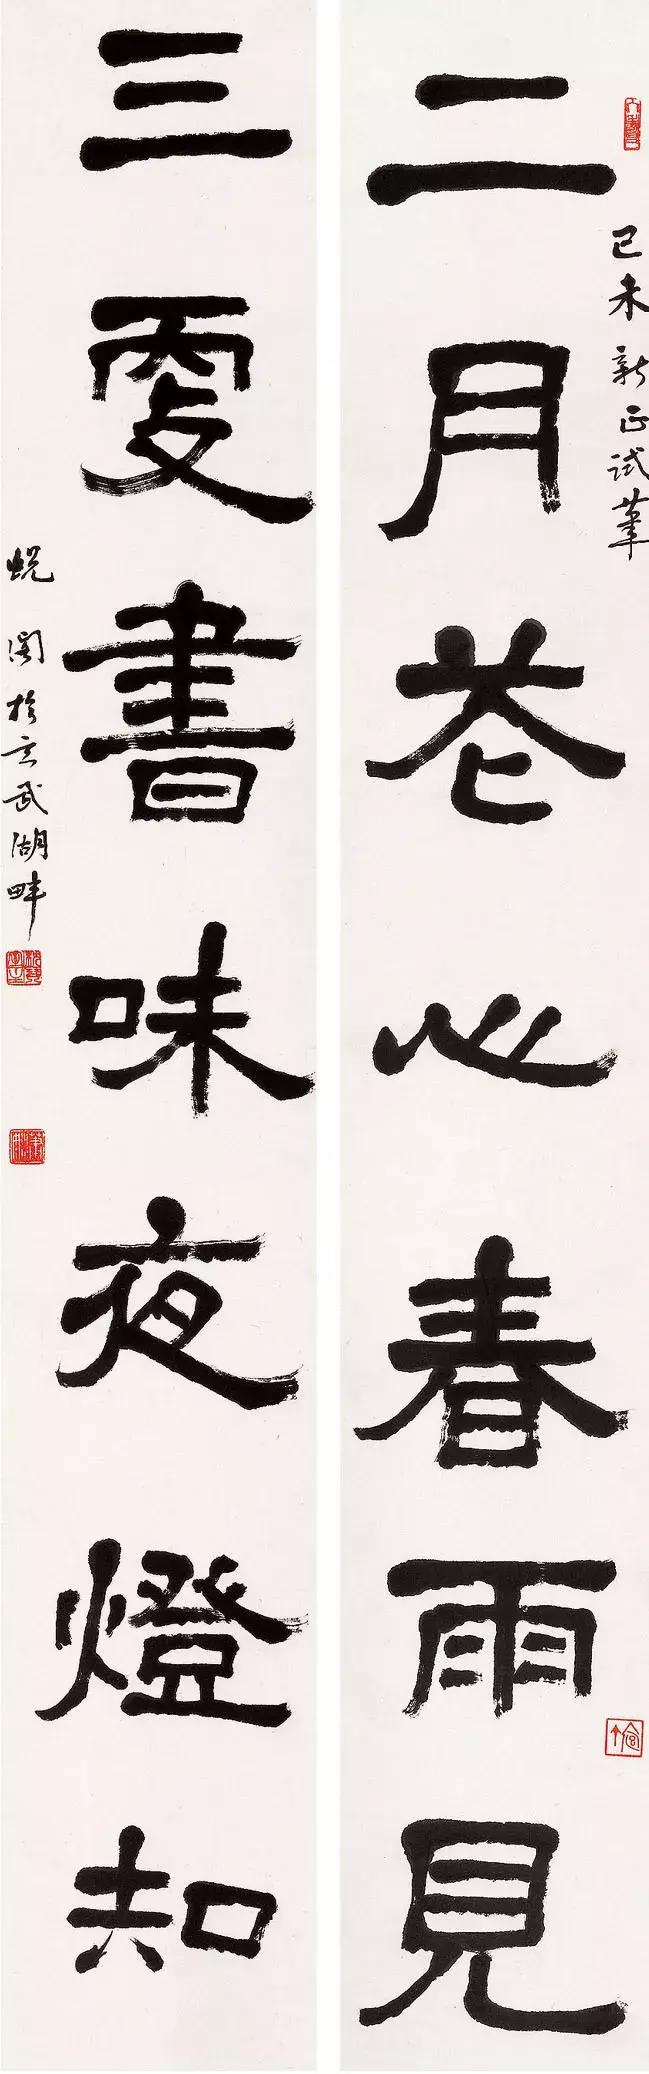 己未新正试笔
二月花心春雨見
三更書味夜燈知
蜕闇於玄武湖畔